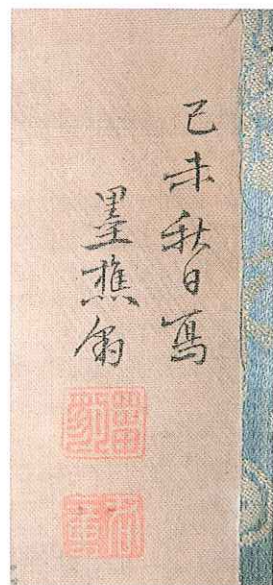 己未秋日寫
墨樵翁